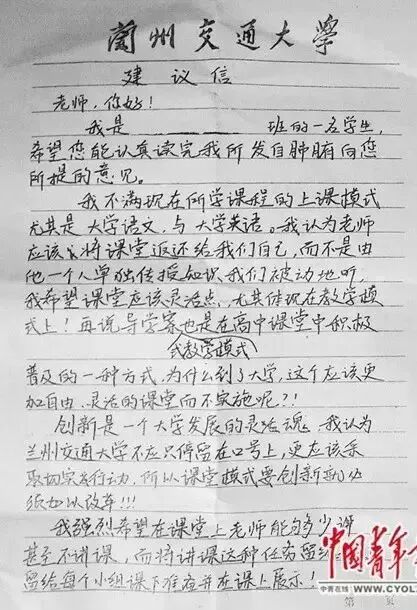 蘭州交通大學
建议信
老师,你好!
我是 班的一名学生,
希望您能认真读完我所发自肺腑向您
所提的意见。
我不满现在所学课程的上课模式
尤其是大学语文,与大学英语。我认为老师
应该将课堂返还给我们自己,而不是由
他一个人单独传授知识,我们被动地听,
我希望课堂应该灵活点,尤其体现在教学模
式上!再说导学案也是在高中课堂中积极
式教学模式
普及的一种方式,为什么到了大学,这个应该更
加自由、灵活的课堂而不实施呢?!
创新是一个大学发展的灵魂。我认为
兰州交通大学不应只停留在口号上,更应该采
取切实行动,所以课堂模式要创新,必
须加以改革!!!
我强烈希望在课堂上老师能够少讲
甚至不讲课,而将讲课这种任务留给
留给每个小组课下准备并在课上展示!
中国青年
中青在线 www.CYOL
第 页